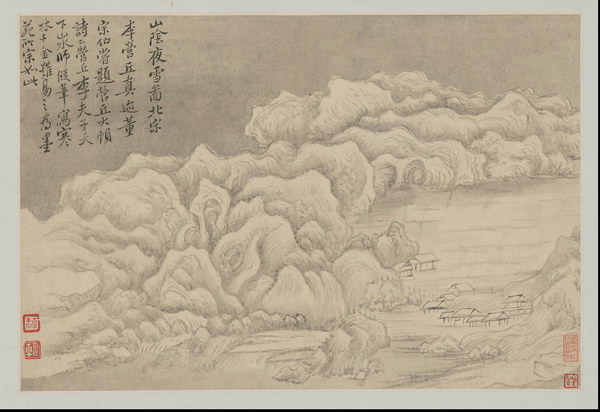 山陰夜雪圖北宗
李營丘真迹董
宗伯嘗題營丘大幀
詩云營丘李夫子天
下山水師假筆寫寒
林千金難易之為墨
苑所宗如此